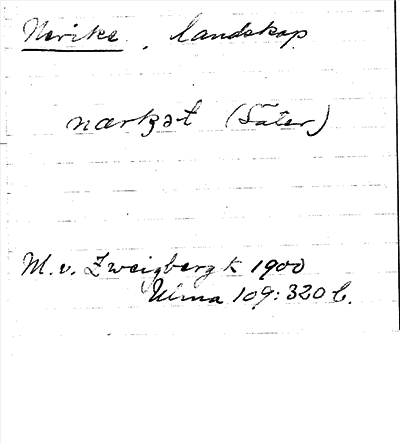 Nerike, landskap
nærkət (Säter)
M. v. Zweigbergk 1900
Ulma 109:320 b.